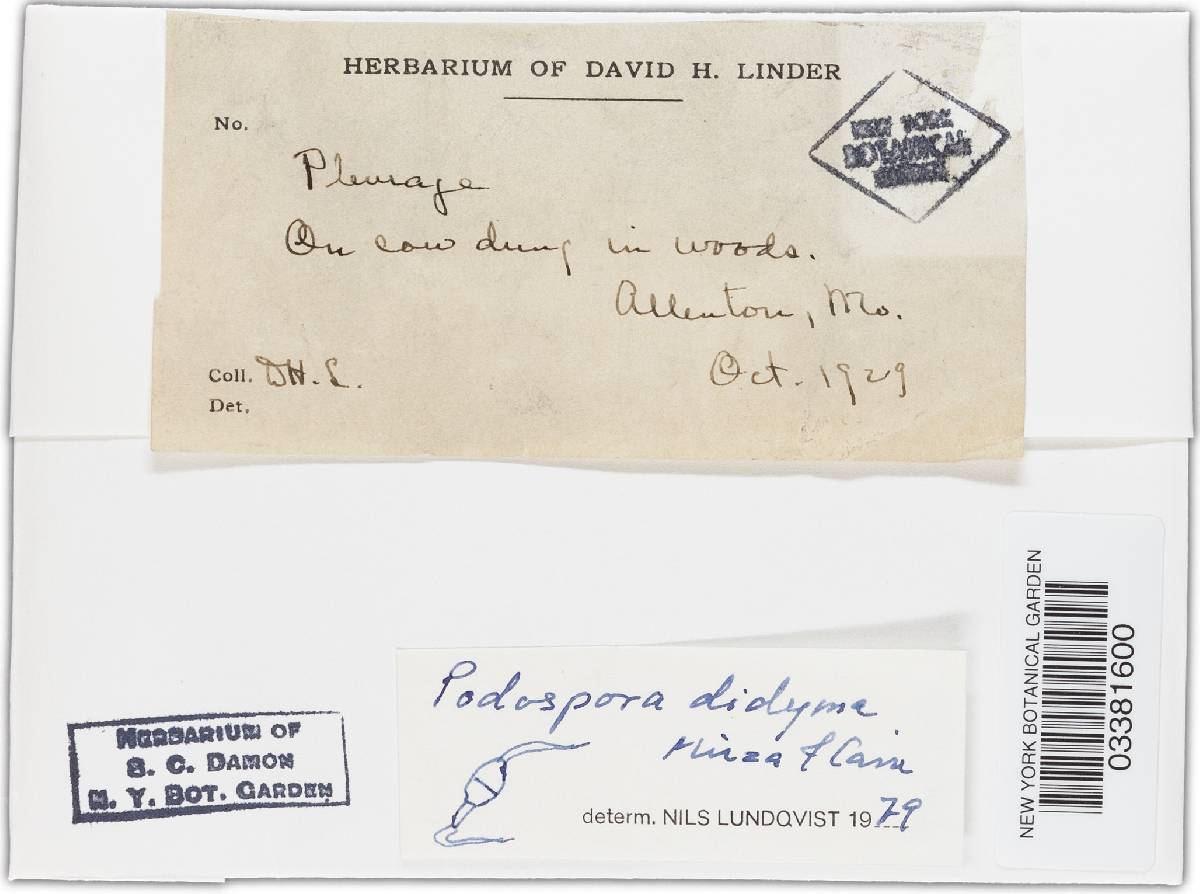 HERBARIUM OF DAVID H. LINDER
No.
NEW YORK
BOTANICAL
GARDEN
Pleurage
On cow dung in woods.
Allenton, Mo.
Coll. DH.L.
Oct. 1929
Det.
NEW YORK BOTANICAL GARDEN
03381600
Podospora didyma
Mirza & Cain
determ. NILS LUNDQVIST 1979
HERBARIUM OF
S. C. DAMON
N. Y. BOT. GARDEN